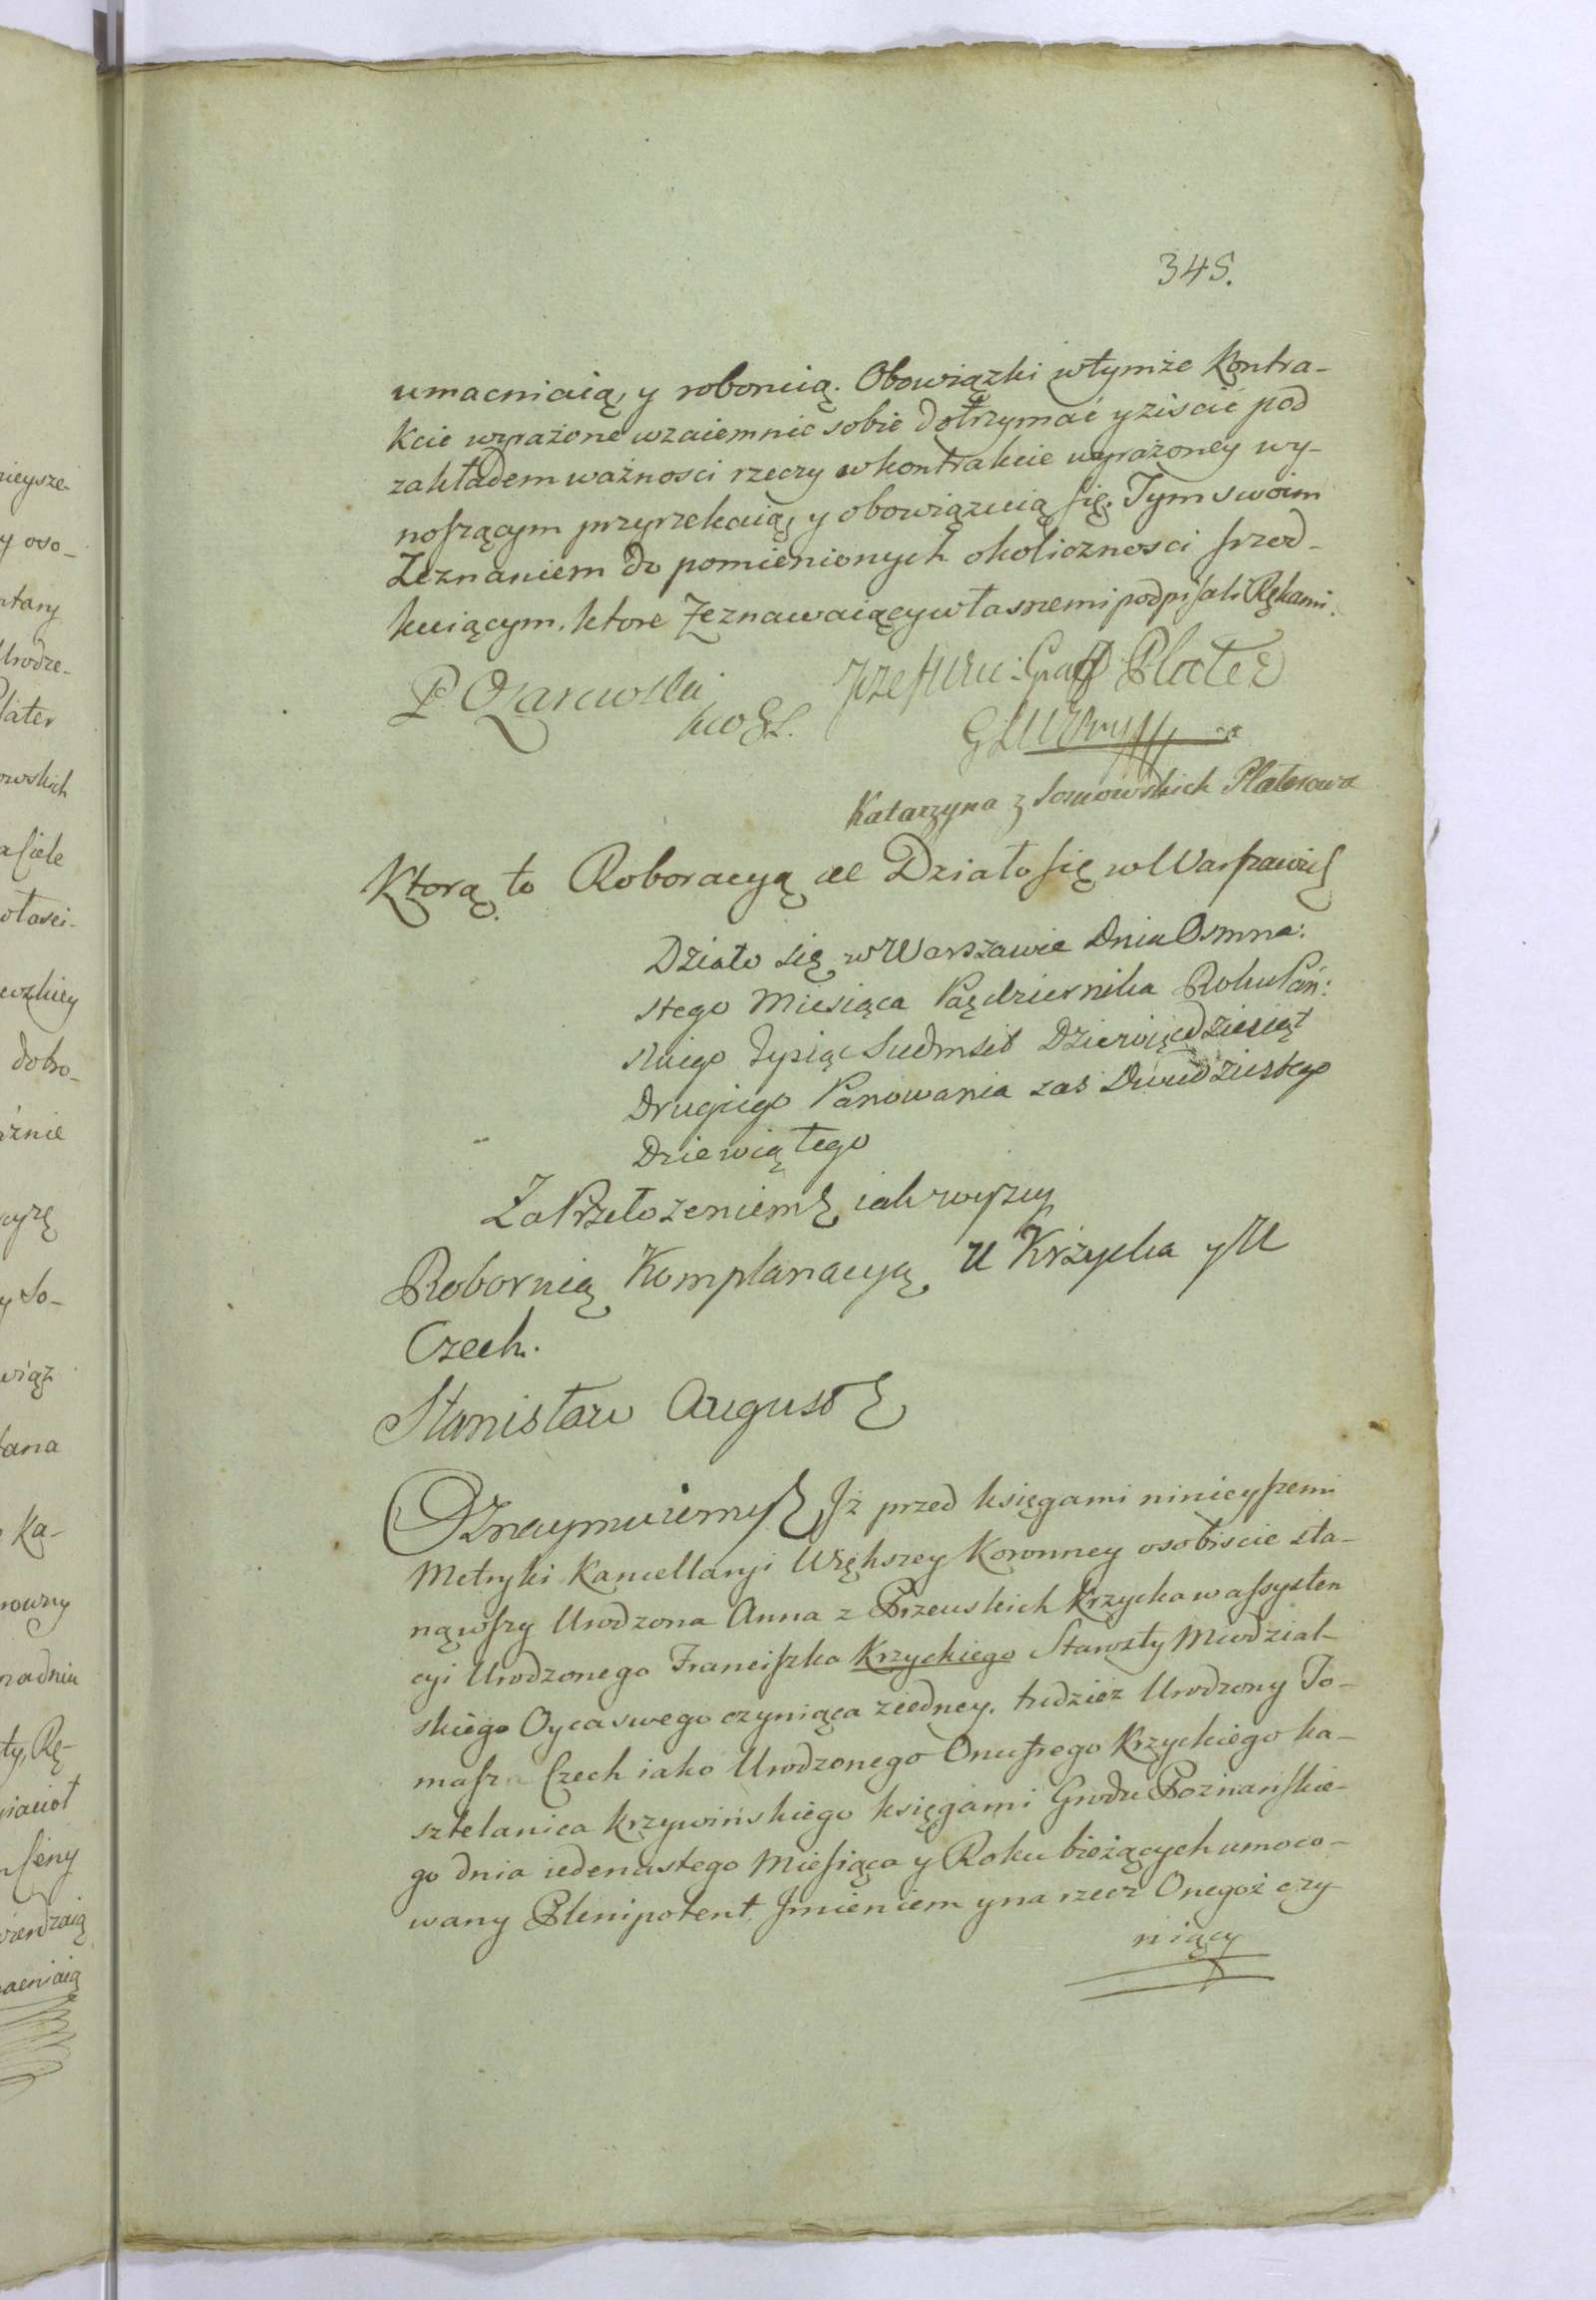 345.
umacniaią, y roboruią. Obowiązki w tymże Kontra-
kcie wyrażone wzaiemnie sobie dotrzymać y ziscić pod
zakładem ważnosci rzeczy w kontrakcie wyrażoney wy-
noszącym przyrzekaią, y obowiązuią się. Tym swoim
Zeznaniem do pomienionych okolicznosci przed-
kuiącym, ktore Zeznawaiący własnemi podpisali Rękami.
P Ożarowski
Graff Plater
Katarzyna z Sosnowskich Platerowa
Ktorą to Roboracyą etc Działo się w Warszawie
Działo się w Warszawie Dnia Osmna:
stego Miesiąca Pazdziernika Roku Pań:
skiego Tysiąc Siedmset Dziewięcdziesiąt
Drugiego Panowania zas Dwudziestego
Dziewiątego
Za Przełożeniem iak wyszey
Roboruią Komplanacyą U Krzycka y U
Czech.
Stanisław August
Oznaymuiemy Jż przed księgami ninieyszemi
Metryki Kancellaryi Większey Koronney osobiscie sta-
nąwszy Urodzona Anna z Brzeuskich Krzycka w assysten
cyi Urodzonego Franciszka Krzyckiego Starosty Miedzial-
skiego Oyca swego czyniąca z iedney, tudziez Urodzony To-
masz Czech iako Urodzonego Onufrego Krzyckiego ka-
sztelanica krzywińskiego księgami Grodu Poznańskie-
go dnia iedenastego Miesiąca y Roku bieżących umoco-
wany Plenipotent Jmieniem y na rzecz Onegoż czy
niący